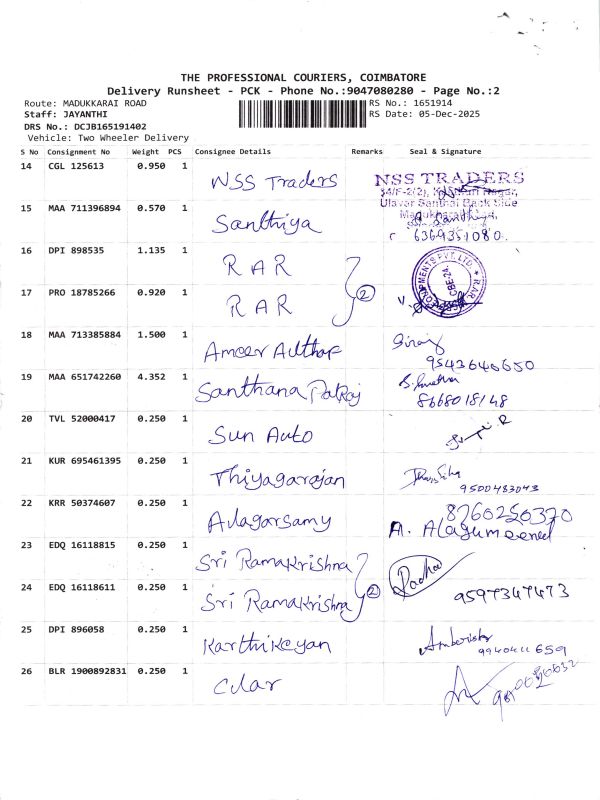 THE PROFESSIONAL COURIERS, COIMBATORE
Delivery Runsheet - PCK - Phone No.:9047080280 - Page No.:2
Route: MADUKKARAI ROAD
RS No.: 1651914
Staff: JAYANTHI
RS Date: 05-Dec-2025
DRS No.: DCJB165191402
Vehicle: Two Wheeler Delivery
S No Consignment No Weight PCS Consignee Details Remarks Seal & Signature
14 CGL 125613 0.950 1 NSS Traders NSS TRADERS
54/F-2(2), Nagar,
Ulavar Santhai Back Side
15 MAA 711396894 0.570 1 Santhiya
6369351080.
16 DPI 898535 1.135 1 RAR
17 PRO 18785266 0.920 1 RAR 2
18 MAA 713385884 1.500 1 Ameer Althaf
9543640650
19 MAA 651742260 4.352 1 Santhana Palraj
8668018148
20 TVL 52000417 0.250 1 Sun Auto
21 KUR 695461395 0.250 1 Thiyagarajan
9500483043
22 KRR 50374607 0.250 1 Alagarsamy 8760250370
A. Alagumeenal
23 EDQ 16118815 0.250 1 Sri Ramakrishna Radha
24 EDQ 16118611 0.250 1 Sri Ramakrishna 2 9597347473
25 DPI 896058 0.250 1 Karthikeyan
9940411659
26 BLR 1900892831 0.250 1